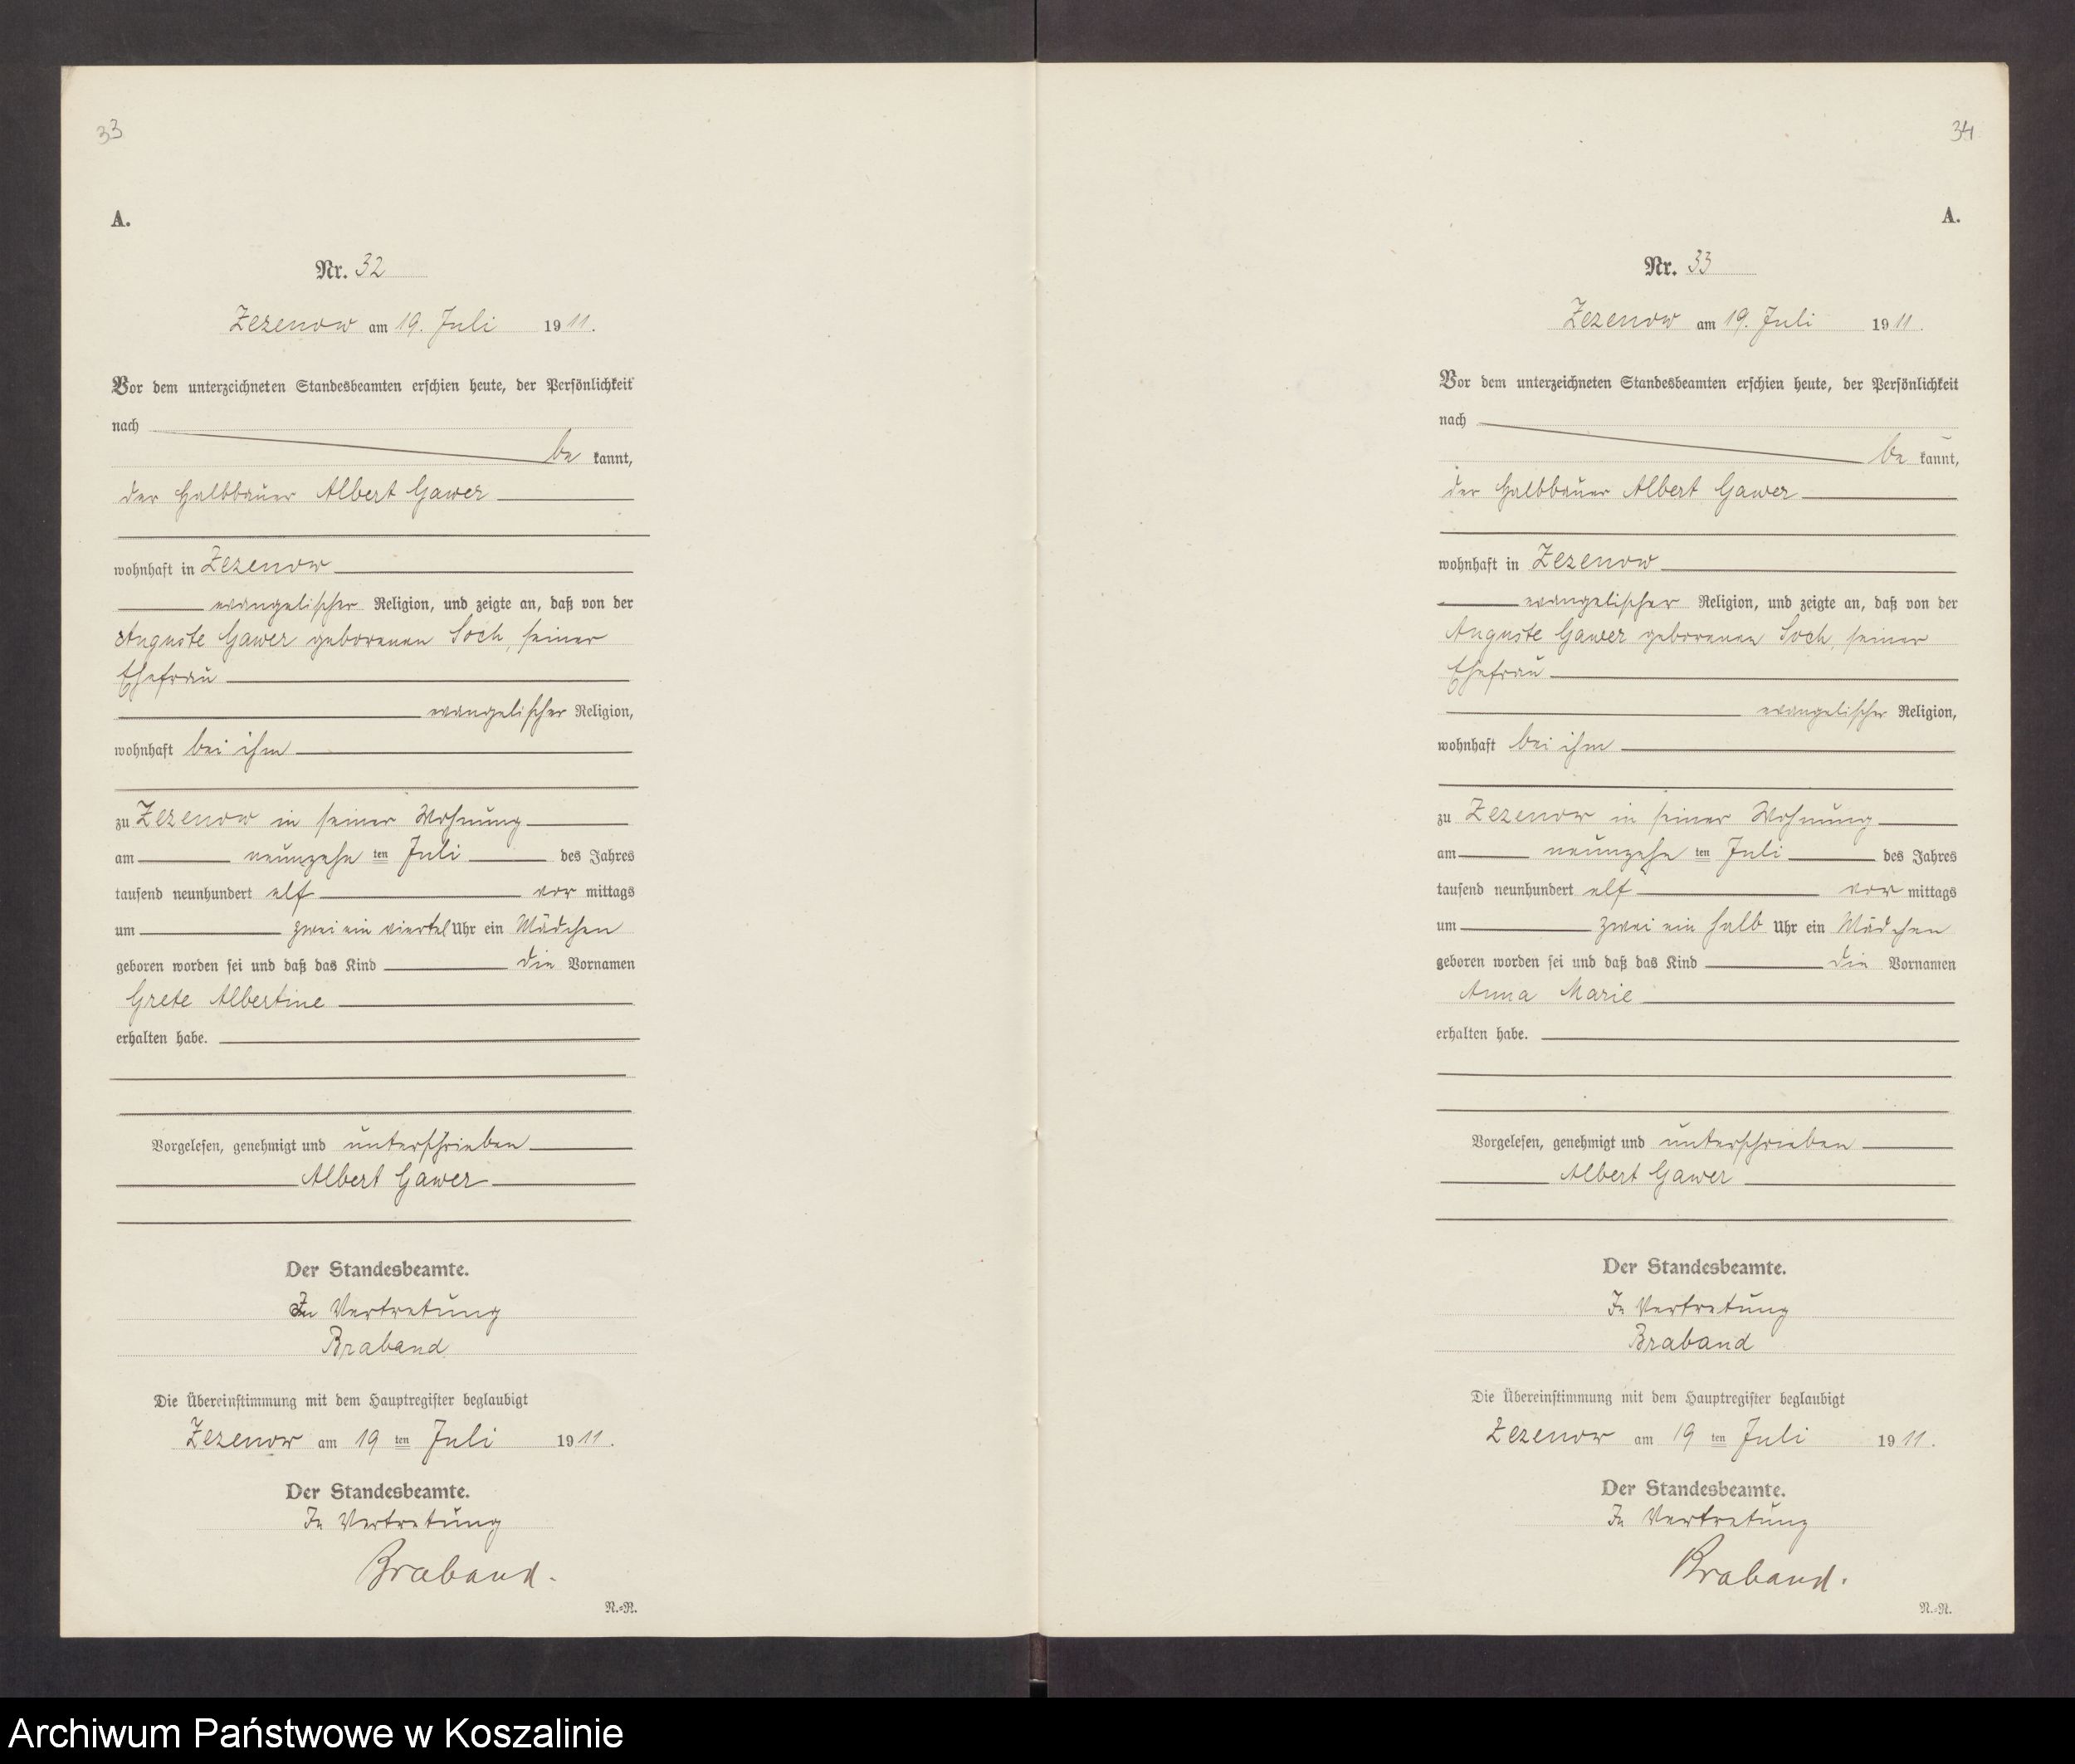 33
A.
Nr. 32
Zezenow am 19. Juli 1911.
Vor dem unterzeichneten Standesbeamten erschien heute, der Persönlichkeit
nach
be kannt,
der Halbbauer Albert Gawer
wohnhaft in Zezenow
evangelischer Religion, und zeigte an, daß von der
Auguste Gawer geborenen Soch, seiner
Ehefrau
evangelischer Religion,
wohnhaft bei ihm
zu Zezenow in seiner Wohnung
am neunzehn ten Juli des Jahres
tausend neunhundert elf vor mittags
um zwei ein viertel Uhr ein Mädchen
geboren worden sei und daß das Kind die Vornamen
Grete Albertine
erhalten habe.
Vorgelesen, genehmigt und unterschrieben
Albert Gawer
Der Standesbeamte.
In Vertretung
Braband
Die Übereinstimmung mit dem Hauptregister beglaubigt
Zezenow am 19 ten Juli 1911.
Der Standesbeamte.
In Vertretung
Braband.
N.=N.
34
A.
Nr. 33
Zezenow am 19. Juli 1911.
Vor dem unterzeichneten Standesbeamten erschien heute, der Persönlichkeit
nach
be kannt,
der Halbbauer Albert Gawer
wohnhaft in Zezenow
evangelischer Religion, und zeigte an, daß von der
Auguste Gawer geborenen Soch, seiner
Ehefrau
evangelischer Religion,
wohnhaft bei ihm
zu Zezenow in seiner Wohnung
am neunzehn ten Juli des Jahres
tausend neunhundert elf vor mittags
um zwei ein halb Uhr ein Mädchen
geboren worden sei und daß das Kind die Vornamen
Anna Marie
erhalten habe.
Vorgelesen, genehmigt und unterschrieben
Albert Gawer
Der Standesbeamte.
In Vertretung
Braband
Die Übereinstimmung mit dem Hauptregister beglaubigt
Zezenow am 19 ten Juli 1911.
Der Standesbeamte.
In Vertretung
Braband.
N.=N.
Archiwum Państwowe w Koszalinie